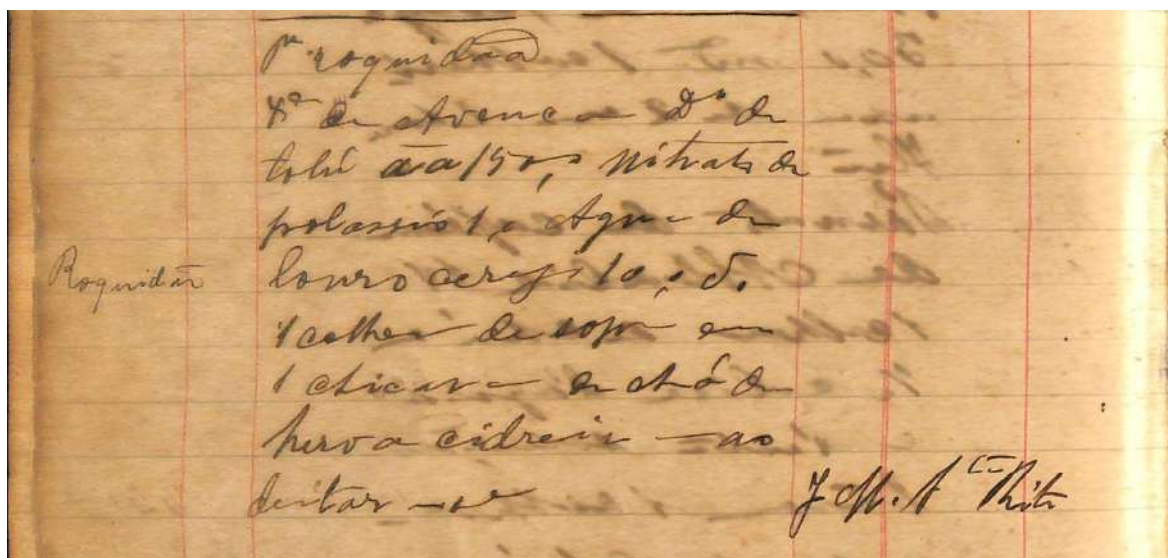 Pª roquidão
Xe de Avenca Dº de
tolú ãa 150, nitrato de
potassio 1, Agua de
Roquidão louro cerejo 10, s.
1 colher de sopa em
1 chicara de chá de
herva cidreira ao
deitar-se
J M. A